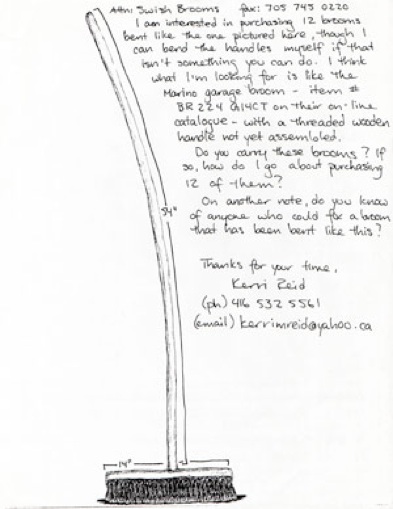 Attn: Swish Brooms fax: 705 745 0220
I am interested in purchasing 12 brooms
bent like the one pictured here, though I
can bend the handles myself if that
isn't something you can do. I think
what I'm looking for is like the
Marino garage broom - item #
BR 224 G14CT on their on-line
catalogue - with a threaded wooden
handle not yet assembled.
Do you carry these brooms? If
so, how do I go about purchasing
12 of them?
On another note, do you know
of anyone who could fix a broom
that has been bent like this?
54"
Thanks for your time,
Kerri Reid
(ph) 416 532 5561
(email) kerrimreid@yahoo.ca
14"